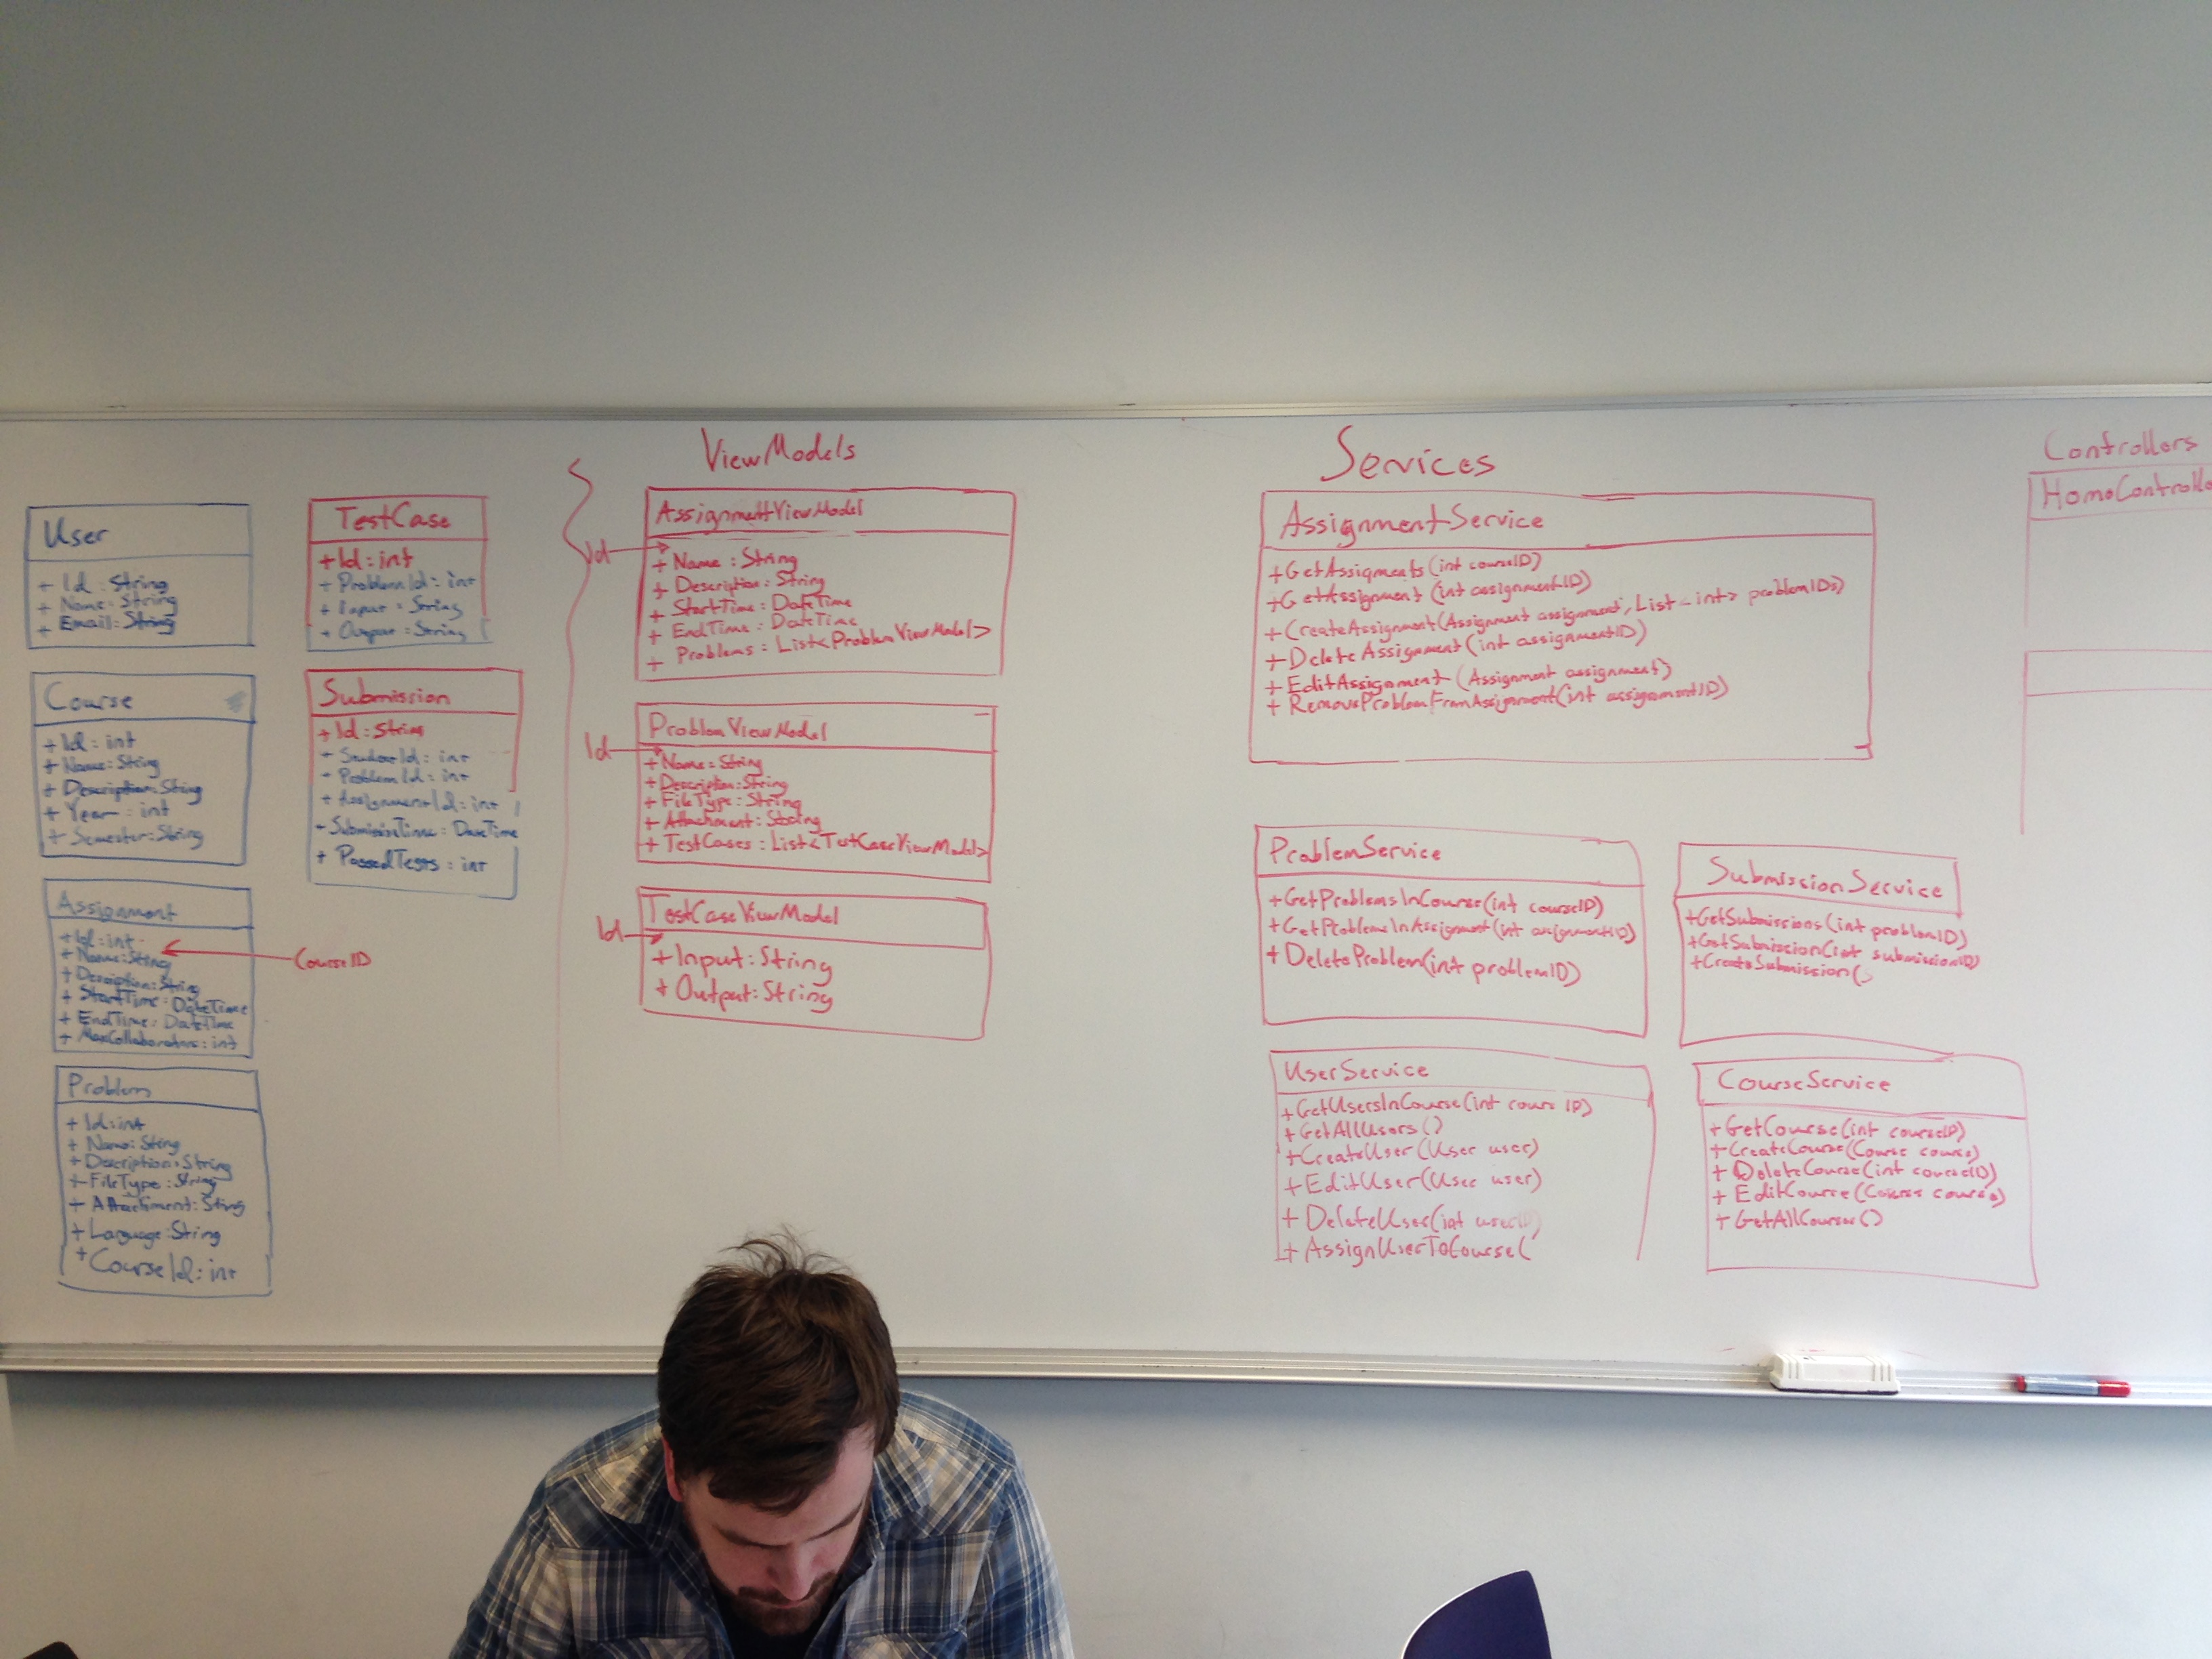 User
+ Id : String
+ Name: String
+ Email: String
Course
+ Id : int
+ Name: String
+ Description: String
+ Year : int
+ Semester: String
Assignment
+ Id: int
+ Name: String
CourseID
+ Description: String
+ StartTime: DateTime
+ EndTime: DateTime
+ MaxCollaborators: int
Problem
+ Id: int
+ Name: String
+ Description: String
+ FileType: String
+ Attachment: String
+ Language: String
+ CourseId: int
TestCase
+ Id: int
+ ProblemId: int
+ Input : String
+ Output : String
Submission
+ Id: String
+ StudentId: int
+ ProblemId: int
+ AssignmentId: int
+ DateTime
+ PassedTests : int
ViewModels
AssignmentViewModel
Id
+ Name : String
+ Description: String
+ StartTime : DateTime
+ EndTime : DateTime
+ Problems : List<ProblemViewModel>
ProblemViewModel
Id
+ Name : String
+ Description: String
+ FileType : String
+ Attachment: String
+ TestCases : List<TestCaseViewModel>
TestCaseViewModel
Id
+ Input: String
+ Output: String
Services
AssignmentService
+ GetAssigments(int courseID)
+ GetAssignment (int assignmentID)
+ CreateAssignment(Assignment assignment, List<int> problemIDs)
+ DeleteAssignment (int assignmentID)
+ EditAssignment (Assignment assignment)
+ RemoveProblemFromAssignment(int assignmentID)
ProblemService
+ GetProblemsInCourse(int courseID)
+ GetProblemsInAssignment(int assignmentID)
+ DeleteProblem(int problemID)
SubmissionService
+ GetSubmissions(int problemID)
+ GetSubmission(int submissionID)
+ CreateSubmission(
UserService
+ GetUsersInCourse(int cours ID)
+ GetAllUsers()
+ CreateUser (User user)
+ EditUser(User user)
+ DeleteUser(int userID)
+ AssignUserToCourse(
CourseService
+ GetCourse(int courseID)
+ CreateCourse(Course course)
+ DeleteCourse(int courseID)
+ EditCourse (Course course)
+ GetAllCourses()
Controllers
HomeControlle